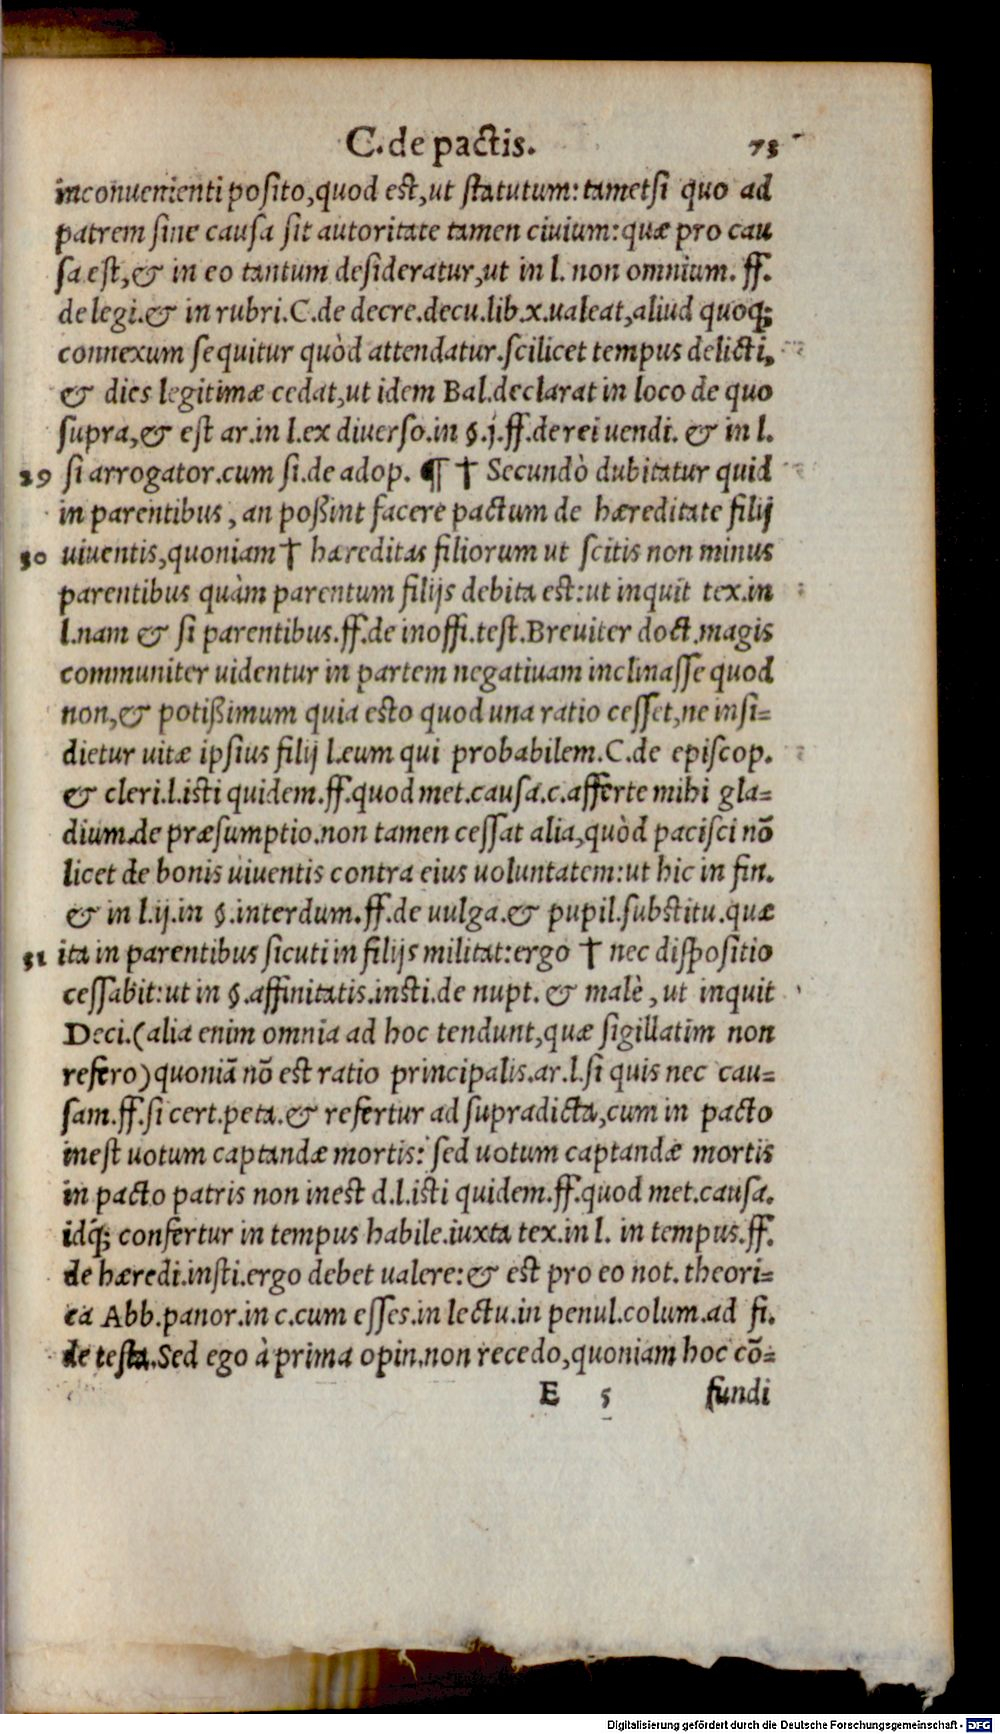 C. de pactis. 73
inconuenienti posito, quod est, ut statutum: tametsi quo ad
patrem sine causa sit autoritate tamen ciuium: quæ pro cau
sa est, & in eo tantum desideratur, ut in l. non omnium. ff.
de legi. & in rubri. C. de decre. decu. lib. x. ualeat, aliud quoq;
connexum sequitur quòd attendatur. scilicet tempus delicti,
& dies legitimæ cedat, ut idem Bal. declarat in loco de quo
supra, & est ar. in l. ex diuerso. in §. j. ff. de rei uendi. & in l.
29 si arrogator. cum si. de adop. ¶ † Secundò dubitatur quid
in parentibus, an poßint facere pactum de hæreditate filij
30 uiuentis, quoniam † hæreditas filiorum ut scitis non minus
parentibus quàm parentum filijs debita est: ut inquit tex. in
l. nam & si parentibus. ff. de inoffi. test. Breuiter doct. magis
communiter uidentur in partem negatiuam inclinasse quod
non, & potißimum quia esto quod una ratio cesset, ne insi=
dietur uitæ ipsius filij l. eum qui probabilem. C. de episcop.
& cleri. l. isti quidem. ff. quod met. causa. c. afferte mihi gla=
dium. de præsumptio. non tamen cessat alia, quòd pacisci nō
licet de bonis uiuentis contra eius uoluntatem: ut hic in fin.
& in l. ij. in §. interdum. ff. de uulga. & pupil. substitu. quæ
31 ita in parentibus sicuti in filijs militat: ergo † nec dispositio
cessabit: ut in §. affinitatis. insti. de nupt. & malè, ut inquit
Deci. (alia enim omnia ad hoc tendunt, quæ sigillatim non
refero) quoniā nō est ratio principalis. ar. l. si quis nec cau=
sam. ff. si cert. peta. & refertur ad supradicta, cum in pacto
inest uotum captandæ mortis: sed uotum captandæ mortis
in pacto patris non inest d. l. isti quidem. ff. quod met. causa.
idq; confertur in tempus habile. iuxta tex. in l. in tempus. ff.
de hæredi. insti. ergo debet ualere: & est pro eo not. theori=
ca Abb. panor. in c. cum esses. in lectu. in penul. colum. ad fi.
de testa. Sed ego à prima opin. non recedo, quoniam hoc cō=
E 5 fundi
Digitalisierung gefördert durch die Deutsche Forschungsgemeinschaft - DFG